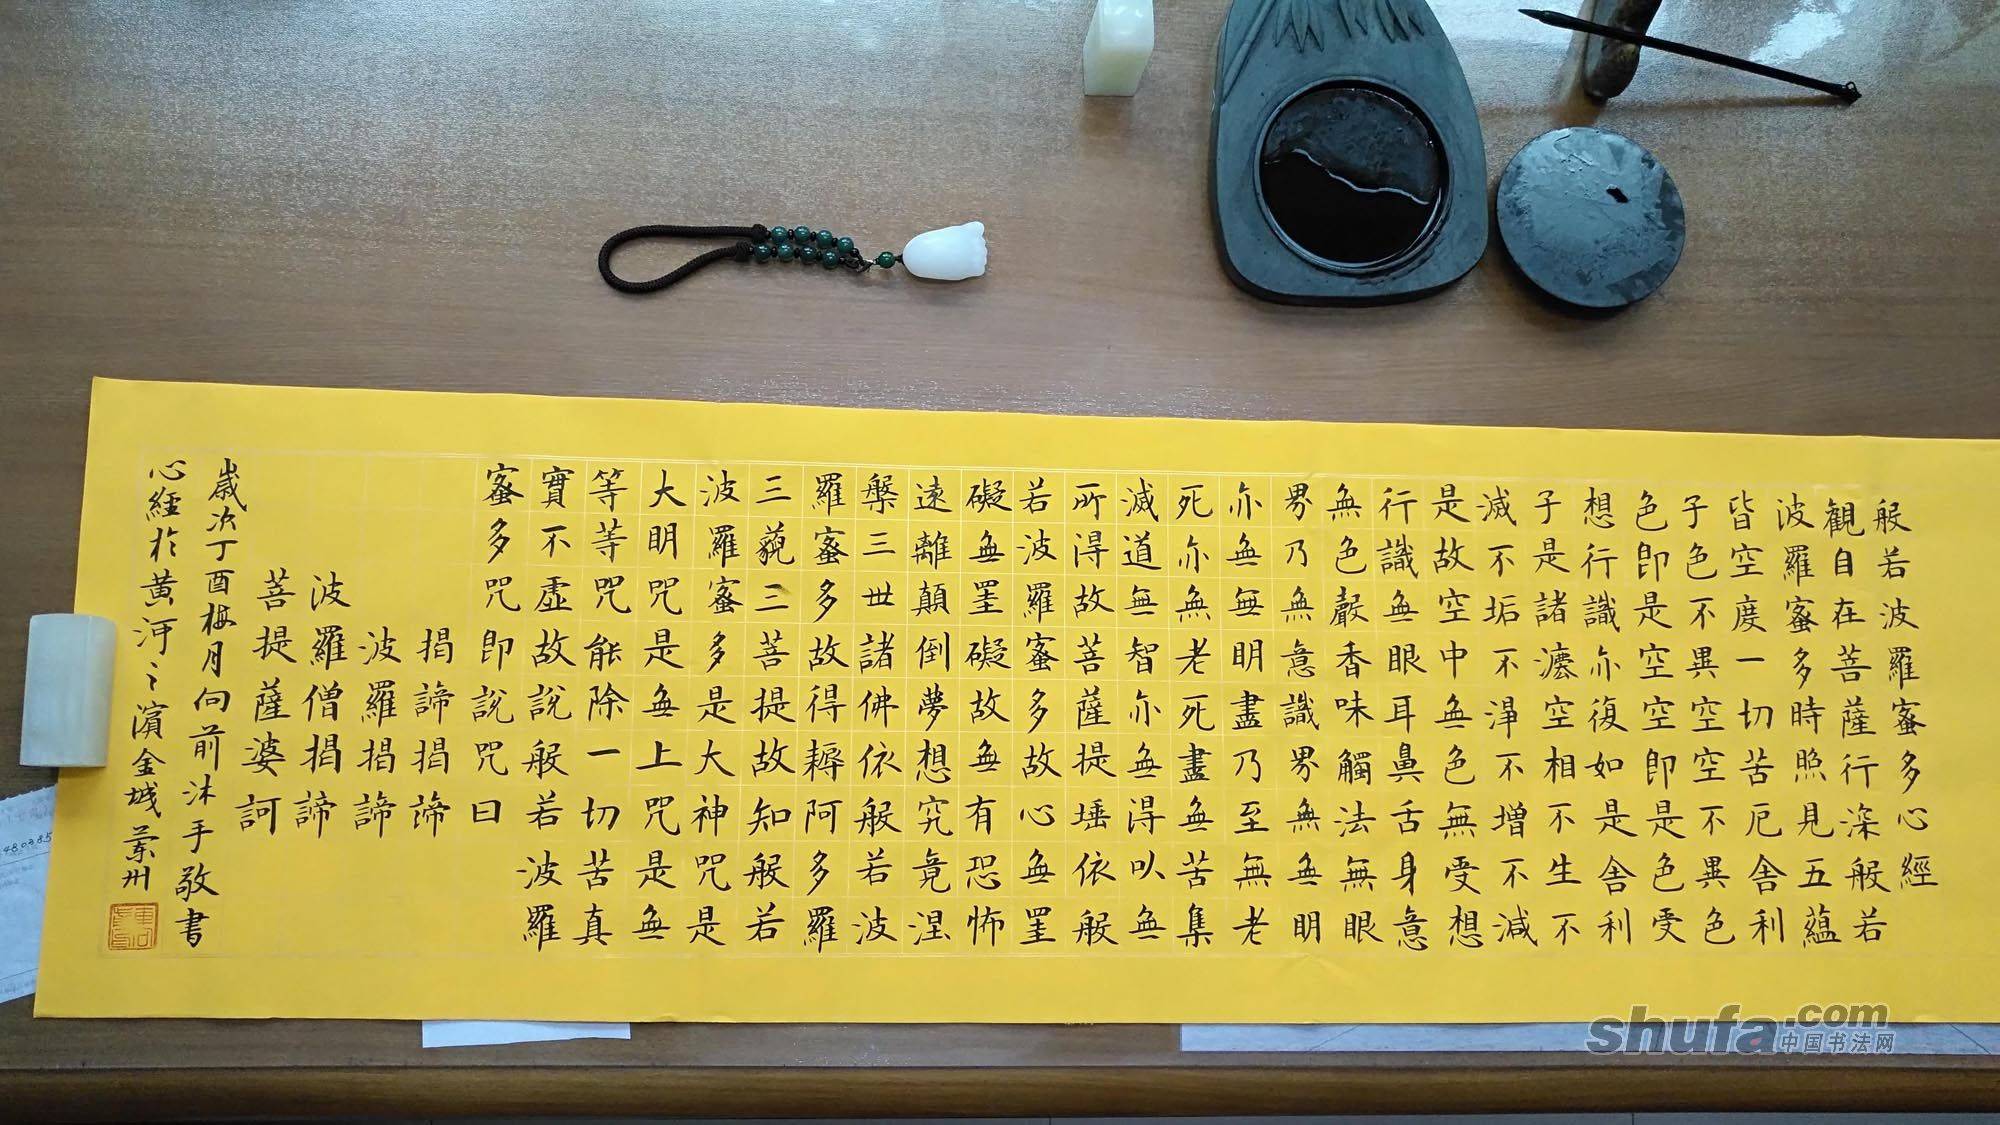 般若波羅蜜多心經
觀自在菩薩行深般若
波羅蜜多時照見五蘊
皆空度一切苦厄舍利
子色不異空空不異色
色即是空空即是色受
想行識亦復如是舍利
子是諸灋空相不生不
滅不垢不淨不增不減
是故空中無色無受想
行識無眼耳鼻舌身意
無色聲香味觸法無眼
界乃無意識界無無明
亦無無明盡乃至無老
死亦無老死盡無苦集
滅道無智亦無得以無
所得故菩薩提埵依般
若波羅蜜多故心無罣
礙無罣礙故無有恐怖
遠離顛倒夢想究竟涅
槃三世諸佛依般若波
羅蜜多故得耨阿多羅
三藐三菩提故知般若
波羅蜜多是大神咒是
大明咒是無上咒是無
等等咒能除一切苦真
實不虛故說般若波羅
蜜多咒即說咒曰
揭諦揭諦
波羅揭諦
波羅僧揭諦
菩提薩婆訶
歲次丁酉梅月向前沐手敬書
心經於黃河之濱金城蘭州
480385
shufa.com
中国书法网